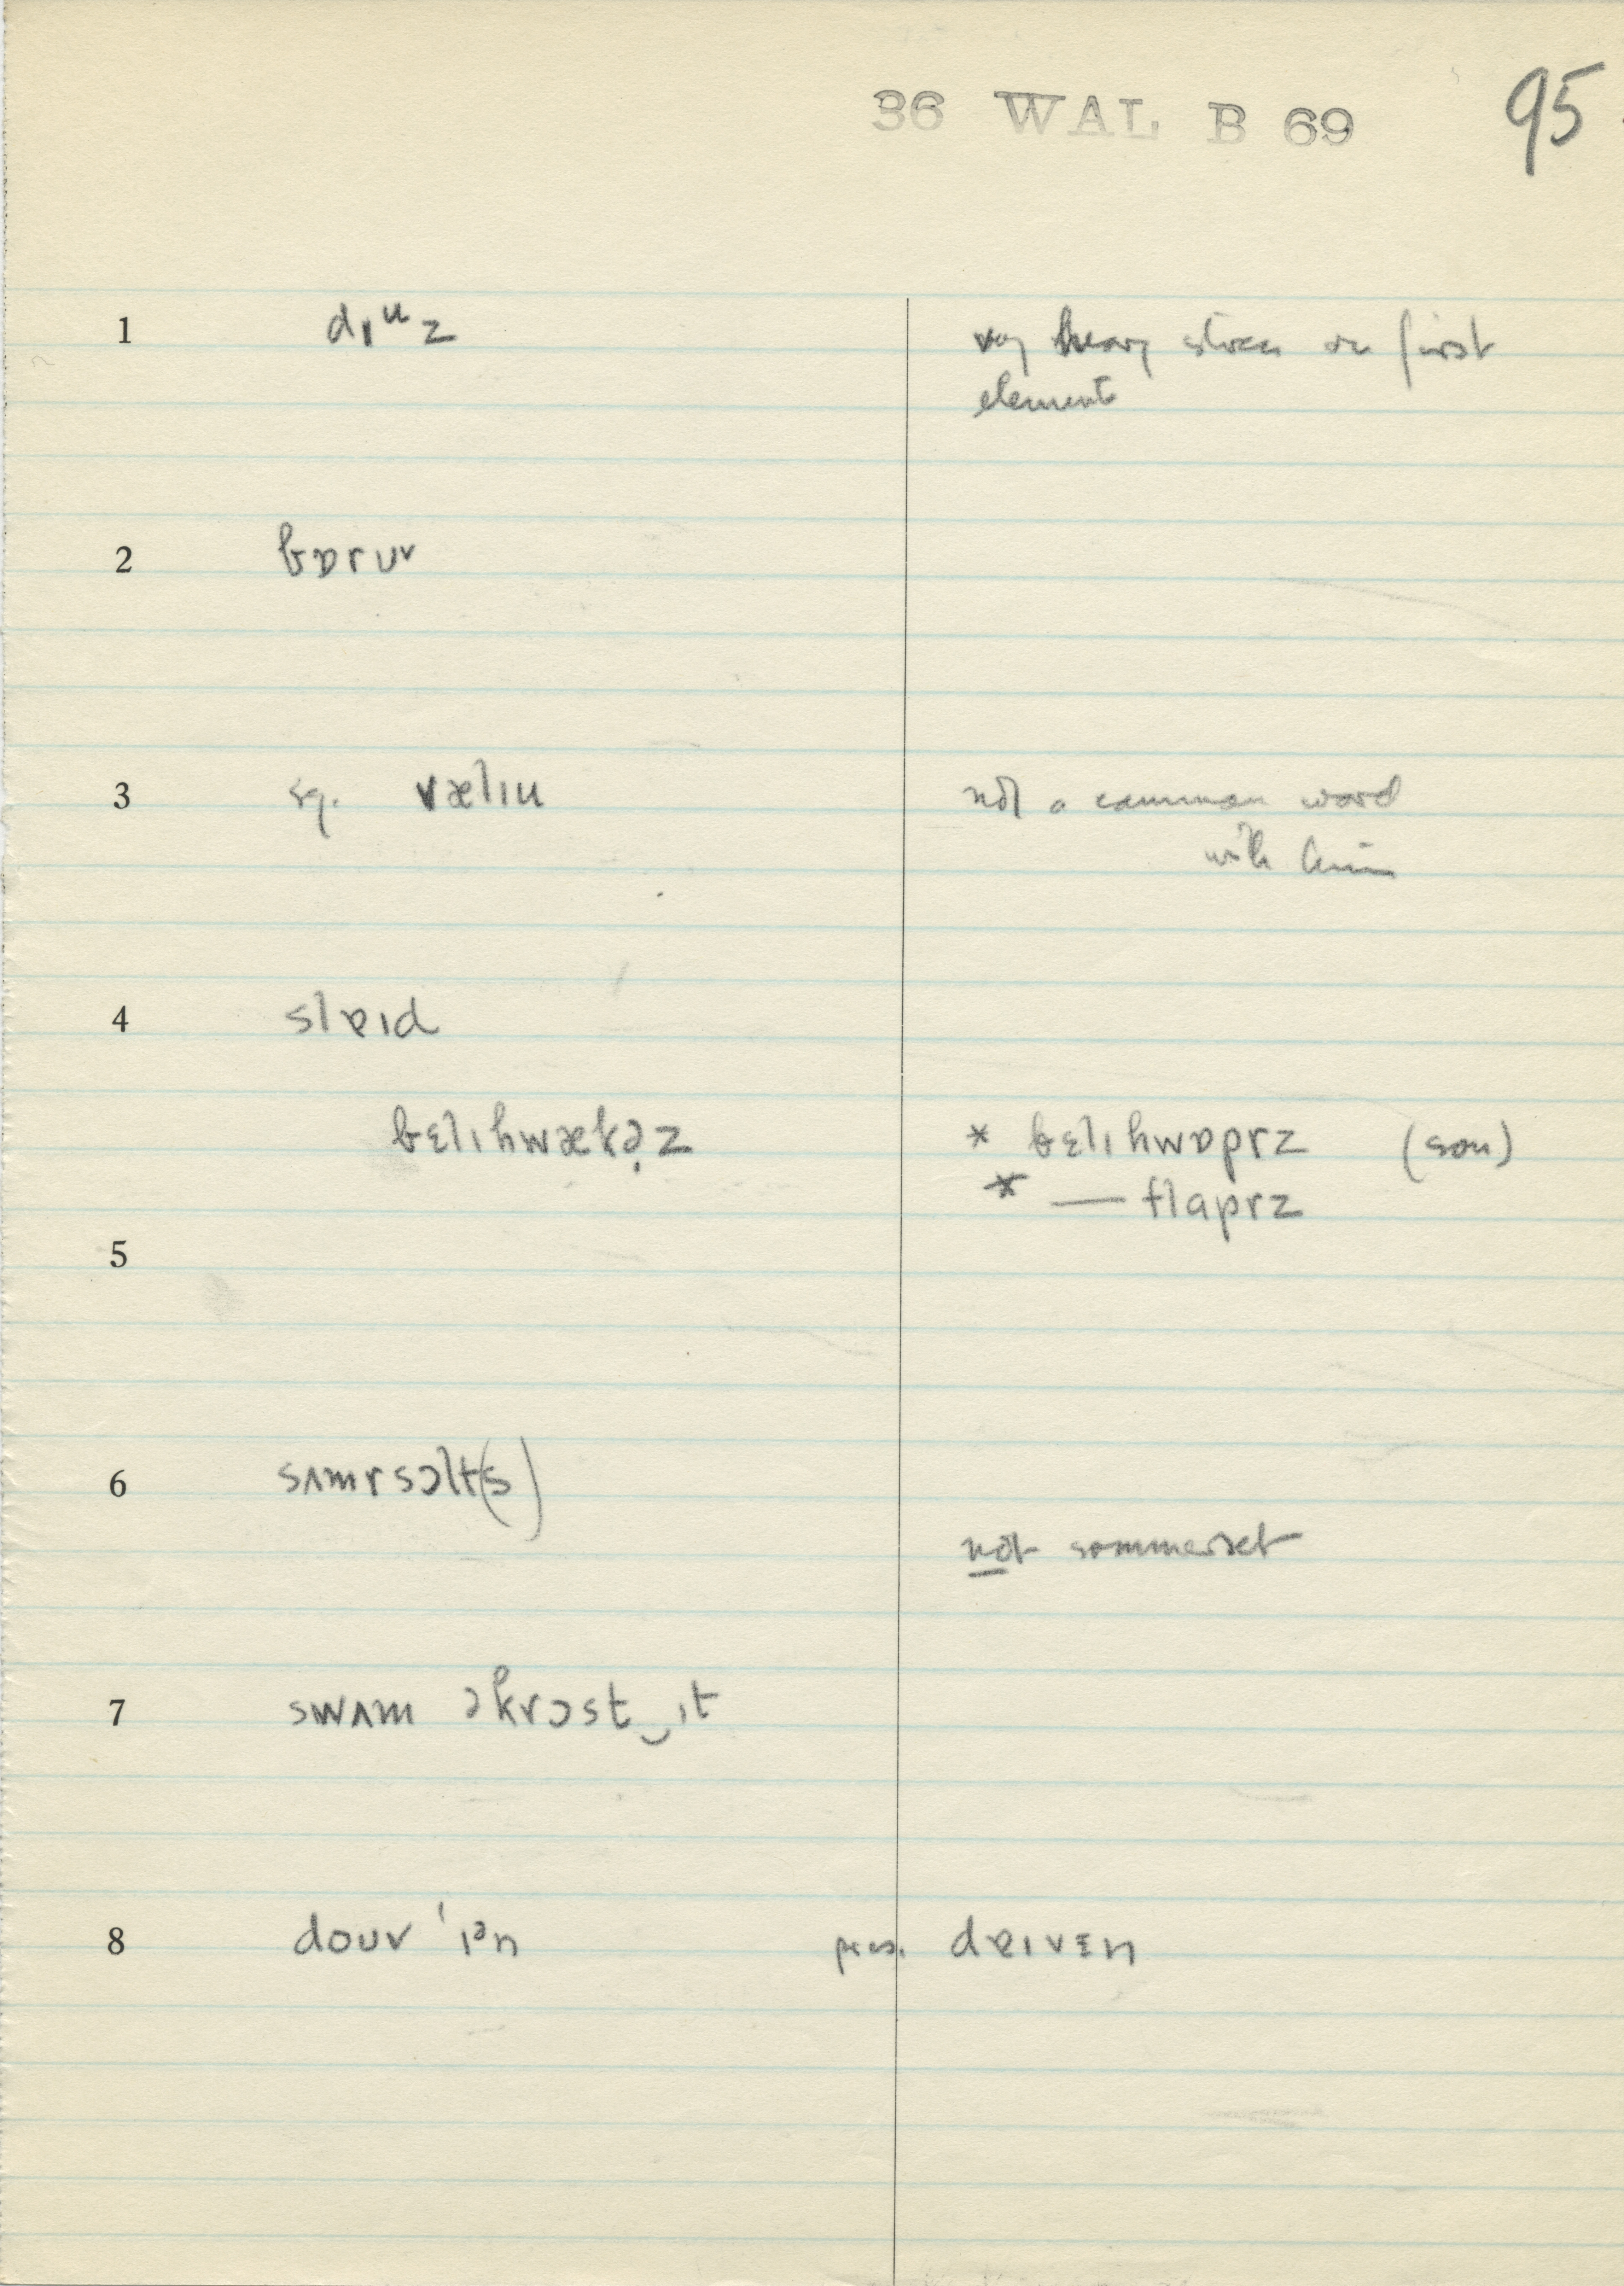 36 WAL B 69 95
1 dɪᶸz very heavy stress on first
element
2 bɒrʊv
3 sg. vælɪu not a common word
with him
4 slɐɪd
bɛlɪhwækə̣z * bɛlɪhwɒprz (son)
* — flaprz
5
6 sʌmrsɔlt(s)
not sommerset
7 swʌm əkrɔst‿ɪt
8 douv ˈɪᵊn pres. dɐɪvɛn